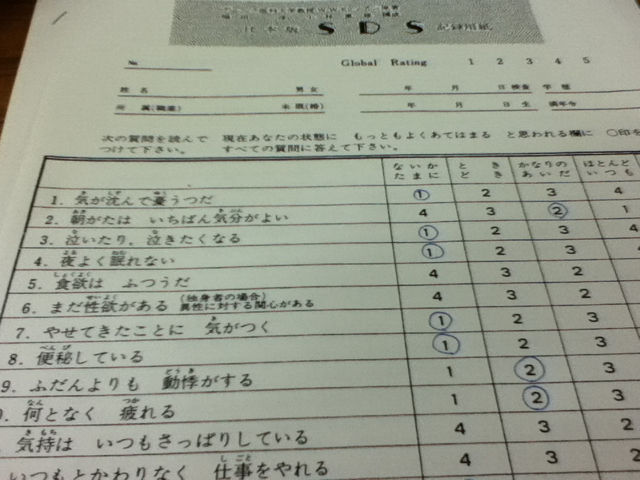 日本版 SDS 記録用紙
№ Global Rating 1 2 3 4 5
姓名 男女 年 月 日検査 学歴
所属(職業) 未既(婚) 年 月 日生 満年令
次の質問を読んで 現在あなたの状態に もっともよくあてはまる と思われる欄に ○印を
つけて下さい。 すべての質問に答えて下さい。
ないか とき かなりの ほとんど
たまに どき あいだ いつも
1. 気が沈んで憂うつだ 1 2 3 4
2. 朝がたは いちばん気分がよい 4 3 2 1
3. 泣いたり、泣きたくなる 1 2 3 4
4. 夜よく眠れない 1 2 3 4
5. 食欲は ふつうだ 4 3 2
6. まだ性欲がある (独身者の場合)異性に対する関心がある 4 3 2
7. やせてきたことに 気がつく 1 2 3
8. 便秘している 1 2 3
9. ふだんよりも 動悸がする 1 2 3
0. 何となく 疲れる 1 2 3
気持は いつもさっぱりしている 4 3 2
いつもとかわりなく 仕事をやれる 4 3 2